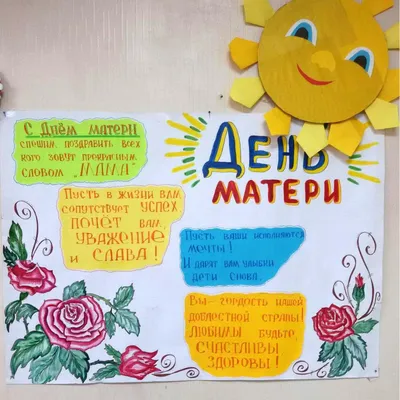 С Днём матери
спешим поздравить всех
кого зовут прекрасным
словом „МАМА"
ДЕНЬ
МАТЕРИ
Пусть в жизни вам
сопутствует успех
почёт вам,
уважение
и слава!
Пусть ваши исполняются
мечты!
И дарят вам улыбки
дети снова.
Вы-гордость нашей
доблестной страны!
Любимы будьте,
счастливы
здоровы!